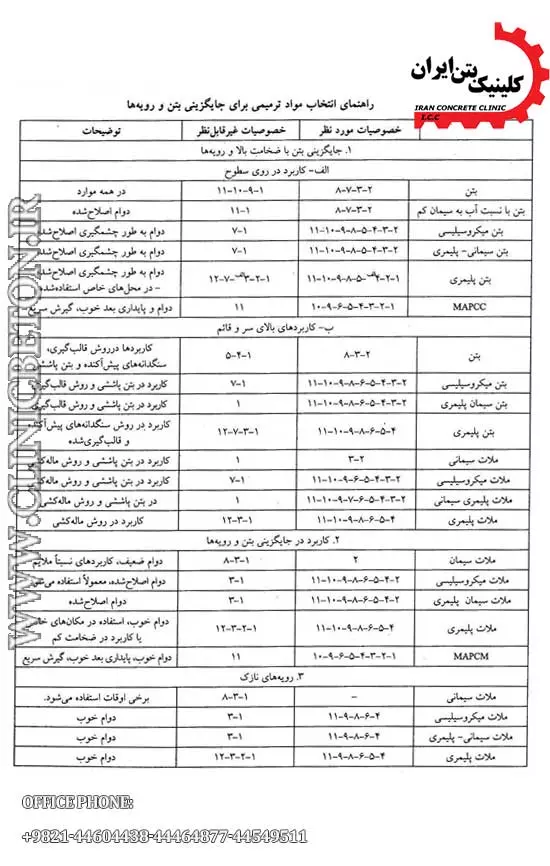 کلینیک بتن ایران
IRAN CONCRETE CLINIC
I.C.C
راهنمای انتخاب مواد ترمیمی برای جایگزینی بتن و رویه‌ها
خصوصیات مورد نظر خصوصیات غیرقابل‌نظر توضیحات
۱. جایگزینی بتن با ضخامت بالا و رویه‌ها
الف- کاربرد در روی سطوح
بتن ۲-۳-۷-۸ ۱-۹-۱۰-۱۱ در همه موارد
بتن با نسبت آب به سیمان کم ۲-۳-۷-۸ ۱-۱۱ دوام اصلاح‌شده
بتن میکروسیلیسی ۲-۳-۴-۵-۸-۹-۱۰-۱۱ ۱-۷ دوام به طور چشمگیری اصلاح‌شده
بتن سیمانی- پلیمری ۲-۳-۴-۵-۸-۹-۱۰-۱۱ ۱-۷ دوام به طور چشمگیری اصلاح‌شده
بتن پلیمری دوام به طور چشمگیری اصلاح‌شده
- در محل‌های خاص استفاده‌شده
MAPCC ۱-۲-۳-۴-۵-۶-۹-۱۰ ۱۱ دوام و پایداری بعد خوب، گیرش سریع
ب- کاربردهای بالای سر و قائم
بتن ۲-۳-۸ ۱-۴-۵ کاربردها درروش قالب‌گیری،
سنگدانه‌های پیش‌آکنده و بتن پاششی
بتن میکروسیلیسی ۲-۳-۴-۵-۶-۸-۹-۱۰-۱۱ ۱-۷ کاربرد در بتن پاششی و روش قالب‌گیری
بتن سیمان پلیمری ۲-۳-۴-۵-۶-۸-۹-۱۰-۱۱ ۱ کاربرد در بتن پاششی و روش قالب‌گیری
بتن پلیمری ۴-۵-۶-۸-۹-۱۰-۱۱ ۱-۳-۷-۱۲ کاربرد در روش سنگدانه‌های پیش‌آکنده
و قالب‌گیری‌شده
ملات سیمانی ۲-۳ ۱ کاربرد در بتن پاششی و روش ماله‌کشی
ملات میکروسیلیسی ۲-۳-۴-۵-۶-۸-۹-۱۰-۱۱ ۱-۷ کاربرد در بتن پاششی و روش ماله‌کشی
ملات پلیمری سیمانی ۲-۳-۴-۵-۶-۷-۹-۱۰-۱۱ ۱ در بتن پاششی و روش ماله‌کشی
ملات پلیمری ۴-۵-۶-۸-۹-۱۰-۱۱ ۱-۳-۱۲ کاربرد در روش ماله‌کشی
۲. کاربرد در جایگزینی بتن و رویه‌ها
ملات سیمان ۲ ۱-۳-۸ دوام ضعیف، کاربردهای نسبتاً ملایم
ملات میکروسیلیسی ۲-۴-۵-۶-۸-۹-۱۰-۱۱ ۱-۳ دوام اصلاح‌شده، معمولاً استفاده می‌شود
ملات سیمان پلیمری ۲-۴-۵-۶-۸-۹-۱۰-۱۱ ۱-۳ دوام اصلاح‌شده
ملات پلیمری ۴-۵-۶-۸-۹-۱۰-۱۱ ۱-۲-۳-۱۲ دوام خوب، استفاده در مکان‌های خاص
یا کاربرد در ضخامت کم
MAPCM ۱-۲-۳-۴-۵-۶-۹-۱۰ ۱۱ دوام خوب، پایداری بعد خوب، گیرش سریع
۳. رویه‌های نازک
ملات سیمانی - ۱-۳-۸ برخی اوقات استفاده می‌شود.
ملات میکروسیلیسی ۴-۶-۸-۹-۱۱ ۱-۳ دوام خوب
ملات سیمانی- پلیمری ۴-۶-۸-۹-۱۱ ۱-۳ دوام خوب
ملات پلیمری ۴-۶-۸-۹-۱۰-۱۱ ۱-۲-۳-۱۲ دوام خوب
WWW.CLINICBETON.IR
OFFICE PHONE:
+9821-44604438-44464877-44549511